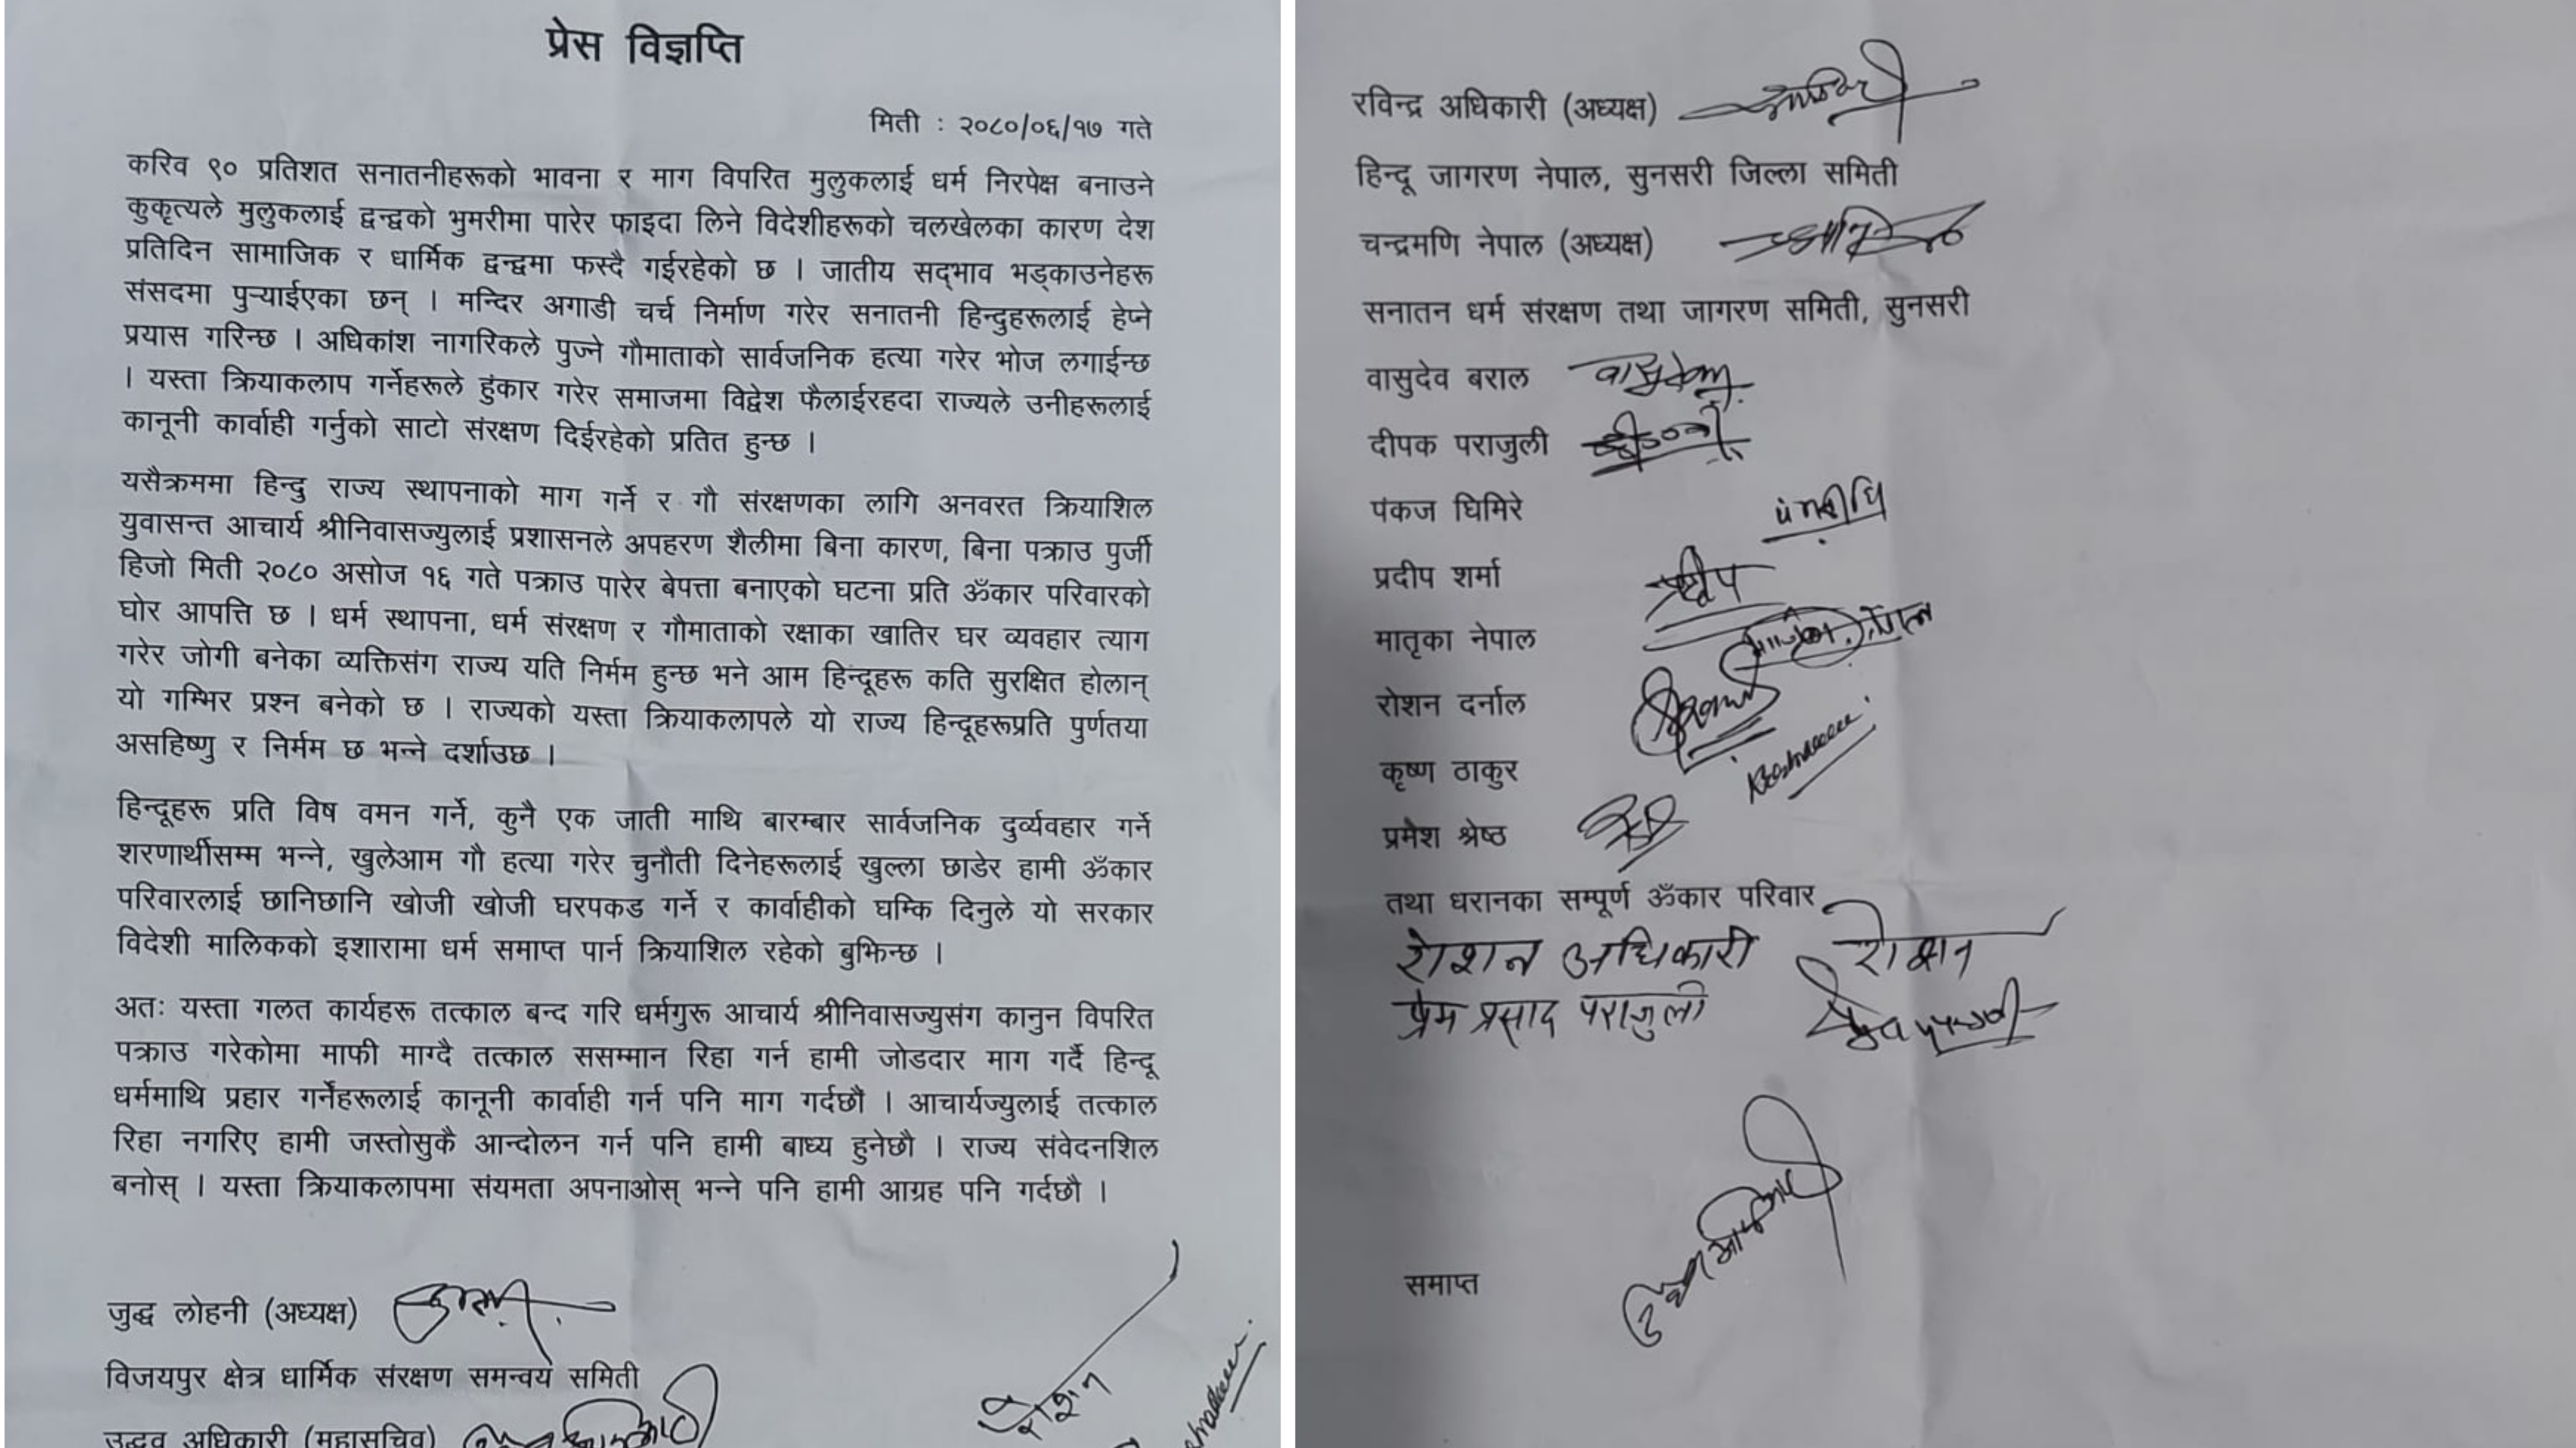 प्रेस विज्ञप्ति
मिती : २०८०/०६/१७ गते
करिव ९० प्रतिशत सनातनीहरूको भावना र माग विपरित मुलुकलाई धर्म निरपेक्ष बनाउने
कुकृत्यले मुलुकलाई द्वन्द्वको भुमरीमा पारेर फाइदा लिने विदेशीहरूको चलखेलका कारण देश
प्रतिदिन सामाजिक र धार्मिक द्वन्द्वमा फस्दै गईरहेको छ । जातीय सद्‌भाव भड्काउनेहरू
संसदमा पुऱ्याईएका छन् । मन्दिर अगाडी चर्च निर्माण गरेर सनातनी हिन्दुहरूलाई हेप्ने
प्रयास गरिन्छ । अधिकांश नागरिकले पुज्ने गौमाताको सार्वजनिक हत्या गरेर भोज लगाईन्छ
। यस्ता क्रियाकलाप गर्नेहरूले हुंकार गरेर समाजमा विद्वेश फैलाईरहदा राज्यले उनीहरूलाई
कानूनी कार्वाही गर्नुको साटो संरक्षण दिईरहेको प्रतित हुन्छ ।
यसैक्रममा हिन्दु राज्य स्थापनाको माग गर्ने र गौ संरक्षणका लागि अनवरत क्रियाशिल
युवासन्त आचार्य श्रीनिवासज्युलाई प्रशासनले अपहरण शैलीमा बिना कारण, बिना पक्राउ पुर्जी
हिजो मिती २०८० असोज १६ गते पक्राउ पारेर बेपत्ता बनाएको घटना प्रति ॐकार परिवारको
घोर आपत्ति छ । धर्म स्थापना, धर्म संरक्षण र गौमाताको रक्षाका खातिर घर व्यवहार त्याग
गरेर जोगी बनेका व्यक्तिसंग राज्य यति निर्मम हुन्छ भने आम हिन्दूहरू कति सुरक्षित होलान्
यो गम्भिर प्रश्न बनेको छ । राज्यको यस्ता क्रियाकलापले यो राज्य हिन्दूहरूप्रति पुर्णतया
असहिष्णु र निर्मम छ भन्ने दर्शाउछ ।
हिन्दूहरू प्रति विष वमन गर्ने, कुनै एक जाती माथि बारम्बार सार्वजनिक दुर्व्यवहार गर्ने
शरणार्थीसम्म भन्ने, खुलेआम गौ हत्या गरेर चुनौती दिनेहरूलाई खुल्ला छाडेर हामी ॐकार
परिवारलाई छानिछानि खोजी खोजी घरपकड गर्ने र कार्वाहीको घम्कि दिनुले यो सरकार
विदेशी मालिकको इशारामा धर्म समाप्त पार्न क्रियाशिल रहेको बुझिन्छ ।
अतः यस्ता गलत कार्यहरू तत्काल बन्द गरि धर्मगुरू आचार्य श्रीनिवासज्युसंग कानुन विपरित
पक्राउ गरेकोमा माफी माग्दै तत्काल ससम्मान रिहा गर्न हामी जोडदार माग गर्दै हिन्दू
धर्ममाथि प्रहार गर्नेहरूलाई कानूनी कार्वाही गर्न पनि माग गर्दछौं । आचार्यज्युलाई तत्काल
रिहा नगरिए हामी जस्तोसुकै आन्दोलन गर्न पनि हामी बाध्य हुनेछौ । राज्य संवेदनशिल
बनोस् । यस्ता क्रियाकलापमा संयमता अपनाओस् भन्ने पनि हामी आग्रह पनि गर्दछौ ।
जुद्ध लोहनी (अध्यक्ष)
विजयपुर क्षेत्र धार्मिक संरक्षण समन्वय समिती
उद्धव अधिकारी (महासचिव)
रोशन
रविन्द्र अधिकारी (अध्यक्ष)
हिन्दू जागरण नेपाल, सुनसरी जिल्ला समिती
चन्द्रमणि नेपाल (अध्यक्ष)
सनातन धर्म संरक्षण तथा जागरण समिती, सुनसरी
वासुदेव बराल
दीपक पराजुली
पंकज घिमिरे
प्रदीप शर्मा प्रदीप
मातृका नेपाल
रोशन दर्नाल
कृष्ण ठाकुर
प्रमेश श्रेष्ठ
तथा धरानका सम्पूर्ण ॐकार परिवार
रोशन अधिकारी रोशन
प्रेम प्रसाद पराजुली
समाप्त